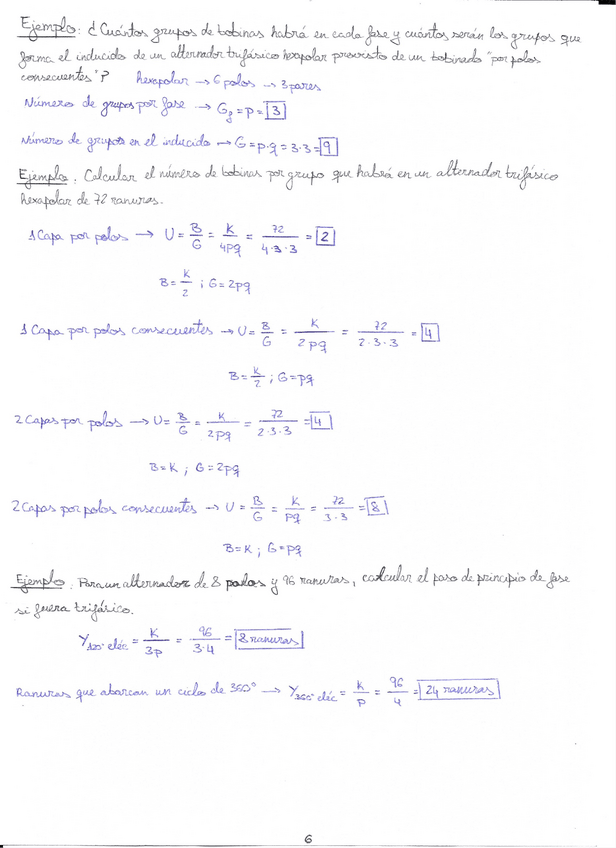 Ejemplo: ¿Cuántos grupos de bobinas habrá en cada fase y cuántos serán los grupos que
forma el inducido de un alternador trifásico hexapolar provisto de un bobinado "por polos
consecuentes"? hexapolar → 6 polos → 3 pares
Número de grupos por fase → Gf = p = 3
Número de grupos en el inducido → G = p·q = 3·3 = 9
Ejemplo. Calcular el número de bobinas por grupo que habrá en un alternador trifásico
hexapolar de 72 ranuras.
1 Capa por polos → U = B/G = K/4pq = 72/4·3·3 = 2
B = K/2 ; G = 2pq
1 Capa por polos consecuentes → U = B/G = K/2pq = 72/2·3·3 = 4
B = K/2 ; G = pq
2 Capas por polos → U = B/G = K/2pq = 72/2·3·3 = 4
B = K ; G = 2pq
2 Capas por polos consecuentes → U = B/G = K/pq = 72/3·3 = 8
B = K ; G = pq
Ejemplo. Para un alternador de 8 polos y 96 ranuras, calcular el paso de principio de fase
si fuera trifásico.
Y120° eléc = K/3p = 96/3·4 = 8 ranuras
Ranuras que abarcan un ciclo de 360° → Y360° eléc = K/p = 96/4 = 24 ranuras
6